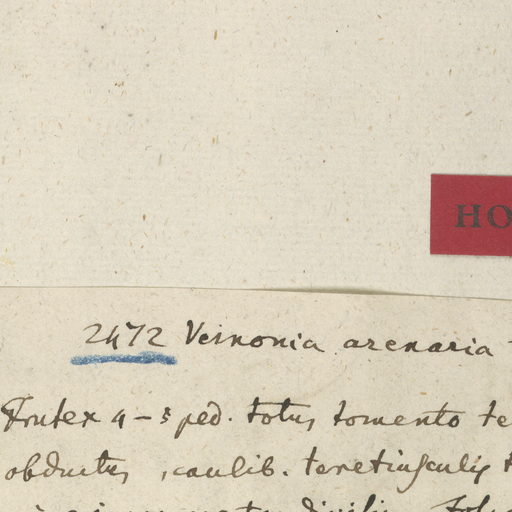 HO
2472 Vernonia arenaria
Frutex 4-5 ped. totus tomento te
obductus, caulib. teretiusculis t